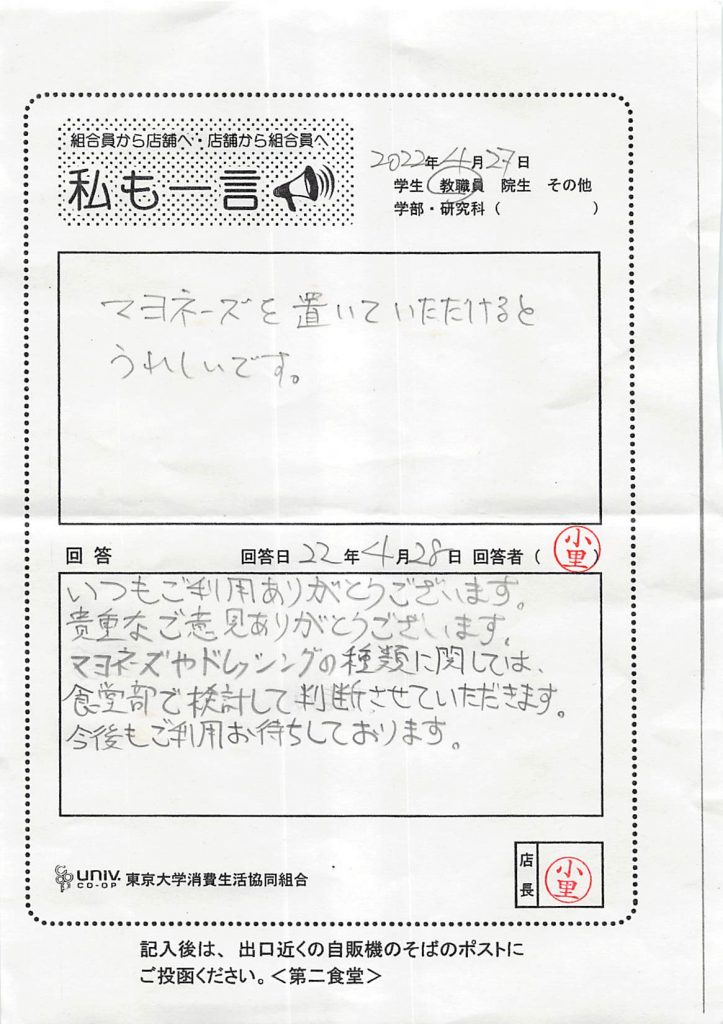 組合員から店舗へ・店舗から組合員へ
私も一言
2022年4月27日
学生 教職員 院生 その他
学部・研究科（ ）
マヨネーズを置いていただけると
うれしいです。
回答 回答日 22年4月28日 回答者（小里）
いつもご利用ありがとうございます。
貴重なご意見ありがとうございます。
マヨネーズやドレッシングの種類に関しては、
食堂部で検討して判断させていただきます。
今後もご利用お待ちしております。
店長 小里
UNIV. CO-OP 東京大学消費生活協同組合
記入後は、出口近くの自販機のそばのポストに
ご投函ください。＜第二食堂＞